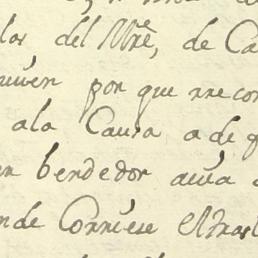 los del Mrẽ, de Ca
por que rrecon
ala Causa a de q
bendedor auia
nde Corriese el tras